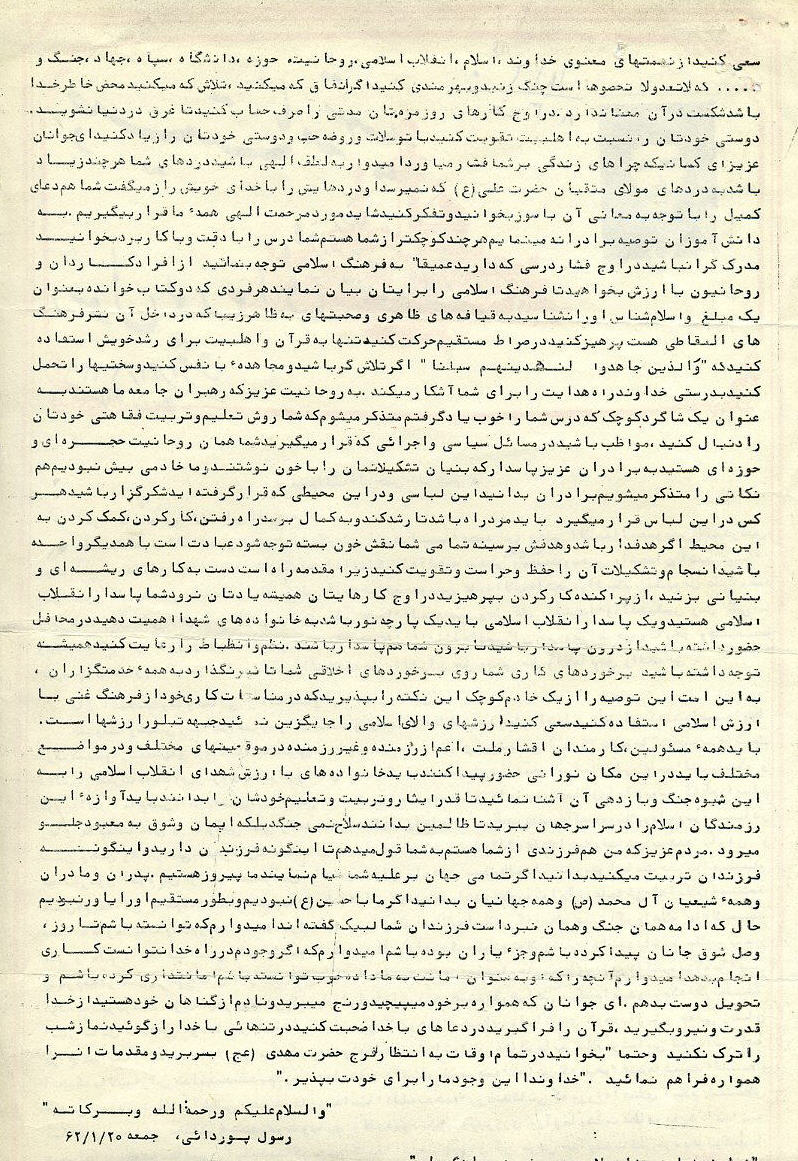 سعی کنید از نعمتهای معنوی خداوند، اسلام، انقلاب اسلامی، روحانیت حوزه، دانشگاه، سپاه، جهاد، جنگ و
..... که لاتعدولا تحصوها است چنگ زنید و بهره مندی کنید اگر انفاق که میکنید، تلاش که میکنید محض خاطر خدا
باشد شکست در آن معنا ندارد. در اوج کارهای روزمره تان مدتی را صرف حساب کنید تا غرق در دنیا نشوید.
دوستی خودتان را نسبت به اهلبیت تقویت کنید با توسلات و روضه حب و دوستی خودتان را زیاد کنید ای جوانان
عزیز ای کسانیکه چراهای زندگی بر شما فشار میاورد امیدوار به لطف الهی باشید دردهای شما هر چند زیاد
باشد به دردهای مولای متقیان حضرت علی (ع) که نمیرسد او دردهایش را با خدای خویش راز میگفت شما هم دعای
کمیل را با توجه به معانی آن با سوز بخوانید و تفکر کنید شاید مورد مرحمت الهی همهٔ ما قرار بگیریم. به
دانش آموزان توصیه برادرانه مینمایم هر چند کوچکتر از شما هستم شما درس را با دقت و با کاربرد بخوانید
مدرک گرا نباشید در اوج فشار درسی که دارید عمیقا" به فرهنگ اسلامی توجه بنمائید از افراد کاردان و
روحانیون با ارزش بخواهید تا فرهنگ اسلامی را برایتان بیان نمایند هر فردی که دو کتاب خوانده بعنوان
یک مبلغ و اسلام شناس او را نشناسید به قیافه های ظاهری و صحبتهای به ظاهر زیبا که در داخل آن نشر فرهنگ
های التقاطی هست پرهیز کنید در صراط مستقیم حرکت کنید تنها به قرآن و اهلبیت برای رشد خویش استفاده
کنید که "والذین جاهدوا لنهدینهم سبلنا" اگر تلاش گر باشید و مجاهدهٔ با نفس کنید و سختیها را تحمل
کنید بدرستی خداوند راه هدایت را برای شما آشکار میکند. به روحانیت عزیز که رهبران جامعه ما هستند به
عنوان یک شاگرد کوچک که درس شما را خوب یاد گرفتم متذکر میشوم که شما روش تعلیم و تربیت فقاهتی خودتان
را دنبال کنید، مواظب باشید در مسائل سیاسی و اجرائی که قرار میگیرید شما همان روحانیت حجره ای و
حوزه ای هستید به برادران عزیز پاسدار که بنیان تشکیلاتمان را با خون نوشتند و ما خادمی بیش نبودیم هم
نکاتی را متذکر میشویم برادران بدانید این لباسی و در این محیطی که قرار گرفته اید شکرگزار باشید هر
کس در این لباس قرار میگیرد باید مرد راه باشد تا رشد کند و به کمال برسد راه رفتن، کار کردن، کمک کردن به
این محیط اگر هدفدار باشد و هدفش بر سینه تمامی شما نقش خون بسته توجه شود عبادت است با همدیگر واحده
باشید انسجام و تشکیلات آن را حفظ و حراست و تقویت کنید زیرا مقدمه راه است دست به کارهای ریشه ای و
بنیانی بزنید، از پراکنده کار کردن بپرهیزید در اوج کارهایتان همیشه یادتان نرود شما پاسدار انقلاب
اسلامی هستید و یک پاسدار انقلاب اسلامی باید یک پارچه نور باشد به خانواده های شهدا اهمیت دهید در محافل
حضور داشته باشید از درون پاسدار باشید تا برون شما هم پاسدار باشند. نظم و انظباط را رعایت کنید همیشه
توجه داشته باشید برخوردهای کاری شما روی برخوردهای اخلاقی شما تاثیر نگذارد به همهٔ خدمتگزاران،
به این امت این توصیه را از یک خادم کوچک این نکته را بپذیرید که در مناسبات کاری خود از فرهنگ غنی با
ارزش اسلامی استفاده کنید سعی کنید ارزشهای والای اسلامی را جایگزین نمائید جبهه تبلور ارزشها است.
باید همهٔ مسئولین، کارمندان اقشار ملت، اعم از رزمنده و غیر رزمنده در موقعیتهای مختلف و در مواضع
مختلف باید در این مکان نورانی حضور پیدا کنند باید خانواده های با ارزش شهدای انقلاب اسلامی را به
این شیوه جنگ و بازدهی آن آشنا نمائید تا قدر ایثار و تربیت و تعلیم خودشان را بدانند باید آوازهٔ این
رزمندگان اسلام را در سراسر جهان ببرید تا ظالمین بدانند سلاح نمی جنگد بلکه ایمان و شوق به معبود جلو
میرود. مردم عزیز که من هم فرزندی از شما هستم به شما قول میدهم تا اینگونه فرزندان دارید و اینگونه
فرزندان تربیت میکنید بدانید اگر تمامی جهان بر علیه شما قیام نمایند ما پیروز هستیم. پدران و مادران
و همهٔ شیعیان آل محمد (ص) و همه جهانیان بدانید اگر ما با حسین (ع) نبودیم و بطور مستقیم او را یاور نبودیم
حال که ادامه همان جنگ و همان نبرد است فرزندان شما لبیک گفته اند امیدوارم که توانسته باشم تا روز،
وصل شوق جانان پیدا کرده باشم و جزءٔ یاران بوده باشم امیدوارم که اگر وجودم در راه خدا نتوانست کاری
انجام بدهد امیدوارم آنچه را که او به عنوان امانت به ما داده خوب توانسته باشم امانتداری کرده باشم و
تحویل دوست بدهم. ای جوانان که همواره بر خود میپیچید و رنج میبرید و نادم از گناهان خود هستید از خدا
قدرت و نیرو بگیرید، قرآن را فرا گیرید در دعاهای با خدا صحبت کنید در تنهائی با خدا راز گوئید نماز شب
را ترک نکنید و حتما" بخوانید در تمام اوقات به انتظار فرج حضرت مهدی (عج) بسر برید و مقدمات آنرا
همواره فراهم نمائید. "خداوندا این وجود ما را برای خودت بپذیر."
"والسلام علیکم ورحمة الله وبرکاته"
رسول پوردائی، جمعه ۶۲/۱/۲۰